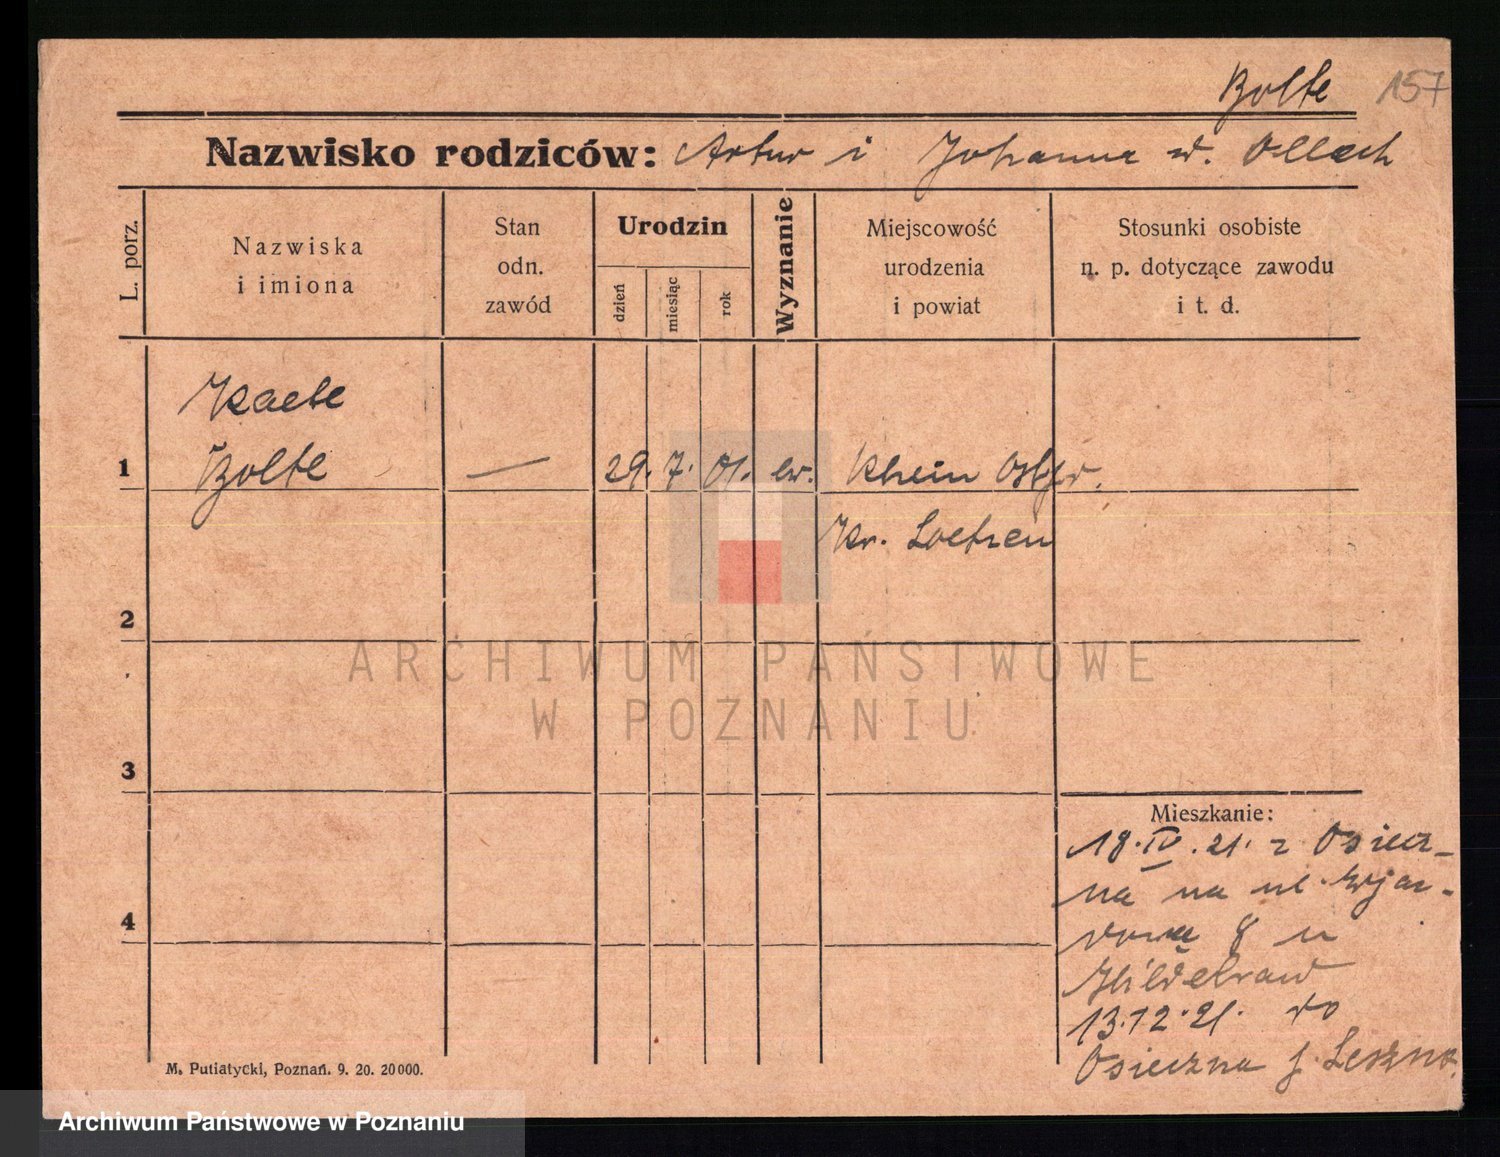 Bolte 157
Nazwisko rodziców: Artur i Johanna w. Ollech
L. porz.
Nazwiska
i imiona
Stan
odn.
zawód
Urodzin
dzień
miesiąc
rok
Wyznanie
Miejscowość
urodzenia
i powiat
Stosunki osobiste
n. p. dotyczące zawodu
i t. d.
Kaete
1 Bolte — 29. 7. 01. ew. Rhein Ostpr.
Kr. Loetzen
2
3
4
Mieszkanie:
18.IV.21. z Osiecz-
na na ul.
8 u
Hildebrand
13.12.21. do
Osieczna p. Leszno.
M. Putiatycki, Poznań. 9. 20. 20000.
ARCHIWUM PAŃSTWOWE
W POZNANIU
Archiwum Państwowe w Poznaniu